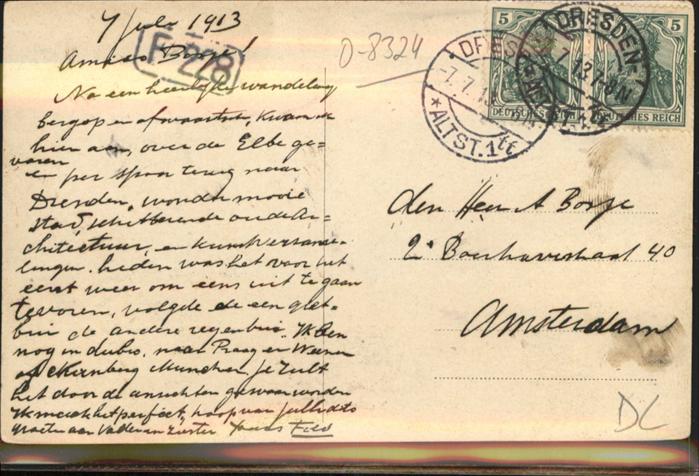 7 July 1913
Amice Borge!
F 228
D-8324
Na een heerlijke wandeling
bergop en afwaarts, kwam ik
hier aan, over de Elbe ge-
varen
en per spoor terug naar
Dresden, wonder mooie
stad, schitterende oude Ar-
chitectuur, en kunstverzame-
lingen. heden was het voor het
eerst weer om eens uit te gaan
tevoren, volgde de een
bui de andere regenbui. Ik ben
nog in dubio, naar Praag en Weenen
of Nürnberg München, je zult
het door de ansichten gewaar worden
Ik maak het perfect, hoop van jullie dito
groeten aan Vader en Zuster
DRESDEN
7.7.13
*ALTST.1
DRESDEN-
7.7.13.7-8N.
5
5
DEUTSCHES REICH
DEUTSCHES REICH
den Heer A Borge
2e Boerhavestraat 40
Amsterdam
DL